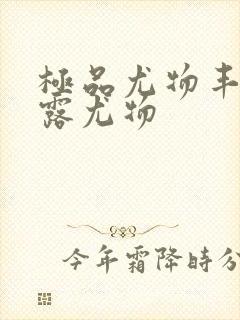 極品尤物丰
露尤物
今年霜降時分